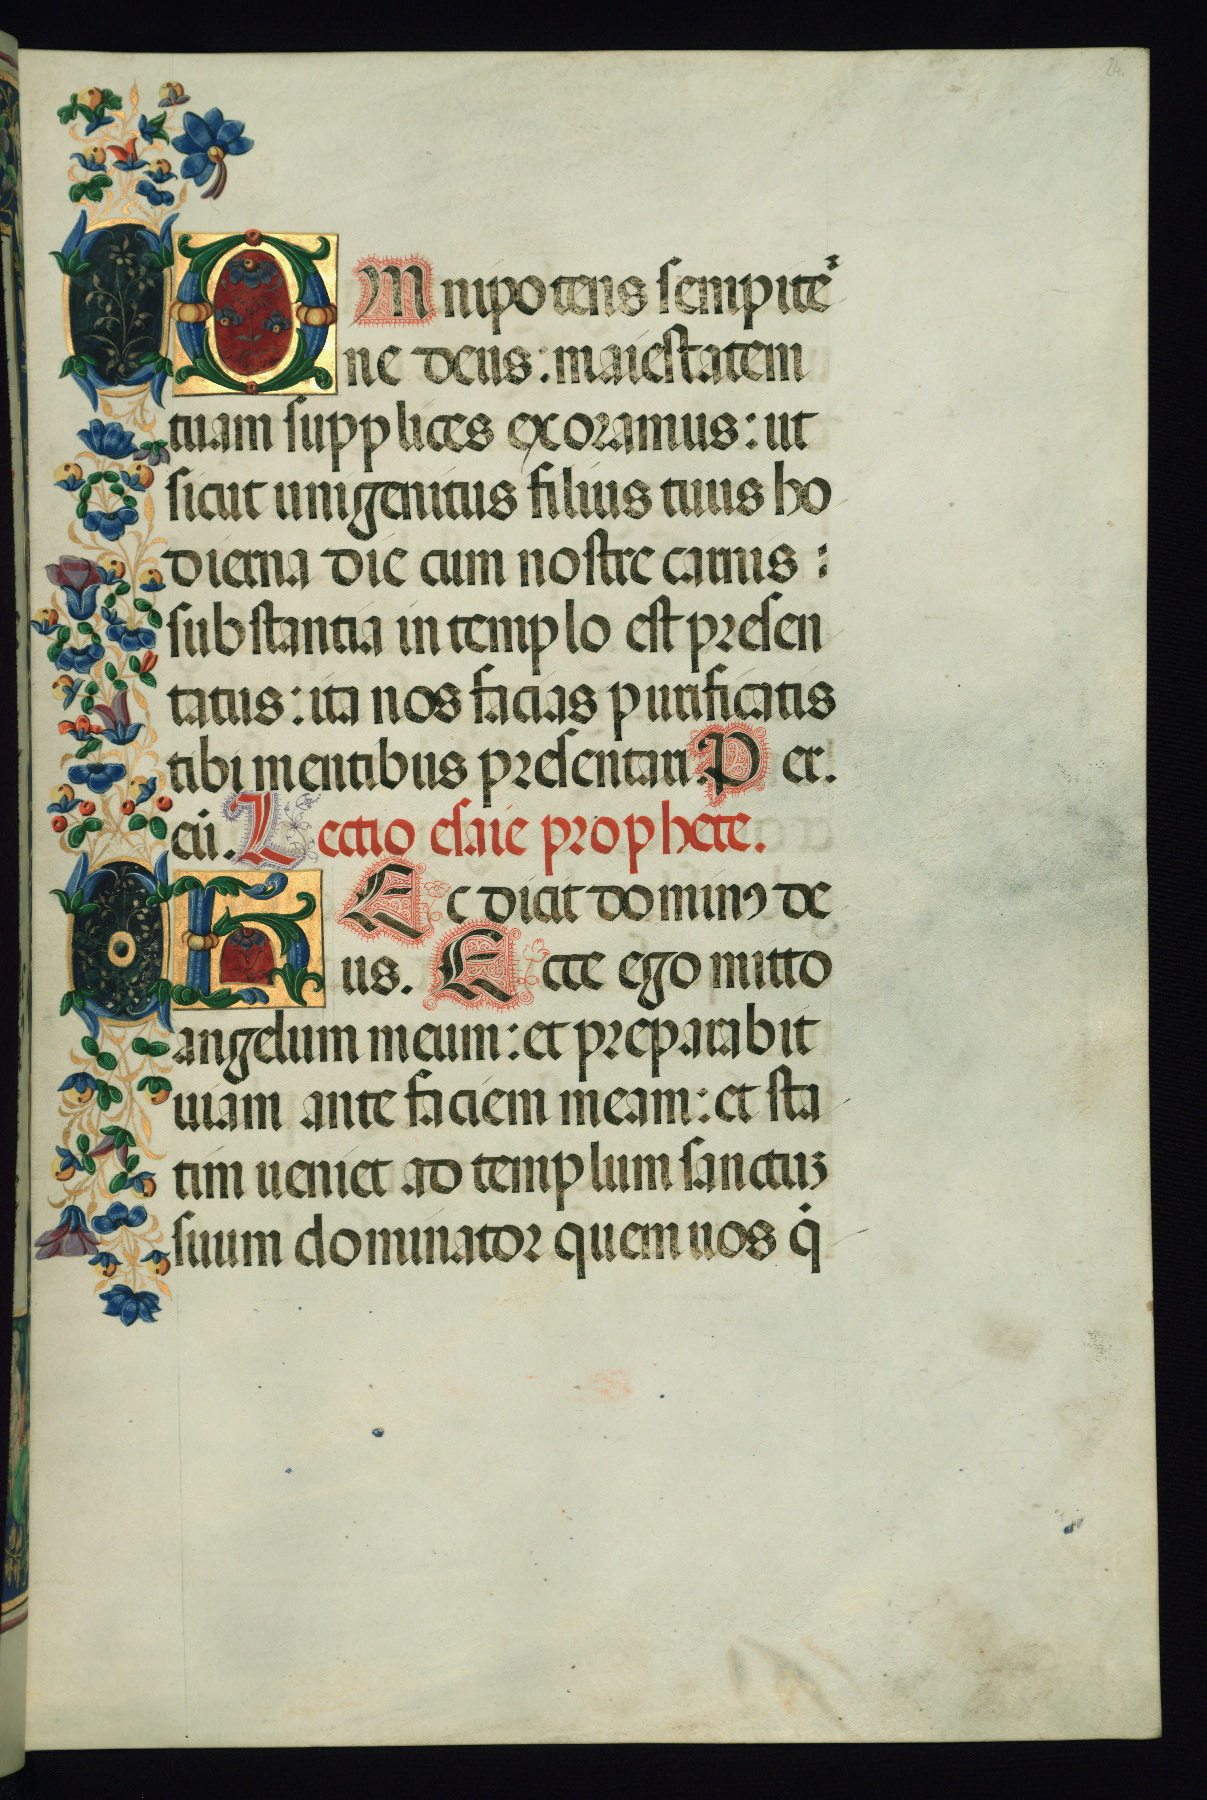 24.
OMnipotens sempite᷑
ne deus: maiestatem
tuam supplices exoramus: ut
sicut unigenitus filius tuus ho
dierna die cum nostre carnis :
substantia in templo est presen
tatus: ita nos facias purificatis
tibi mentibus presentari. Per.
eū. Lectio esaie prophete.
HEc dicit dominꝰ de
us. Ecce ego mitto
angelum meum: et preparabit
uiam ante faciem meam: et sta
tim ueniet ad templum sanctuꝫ
suum dominator quem uos q̇